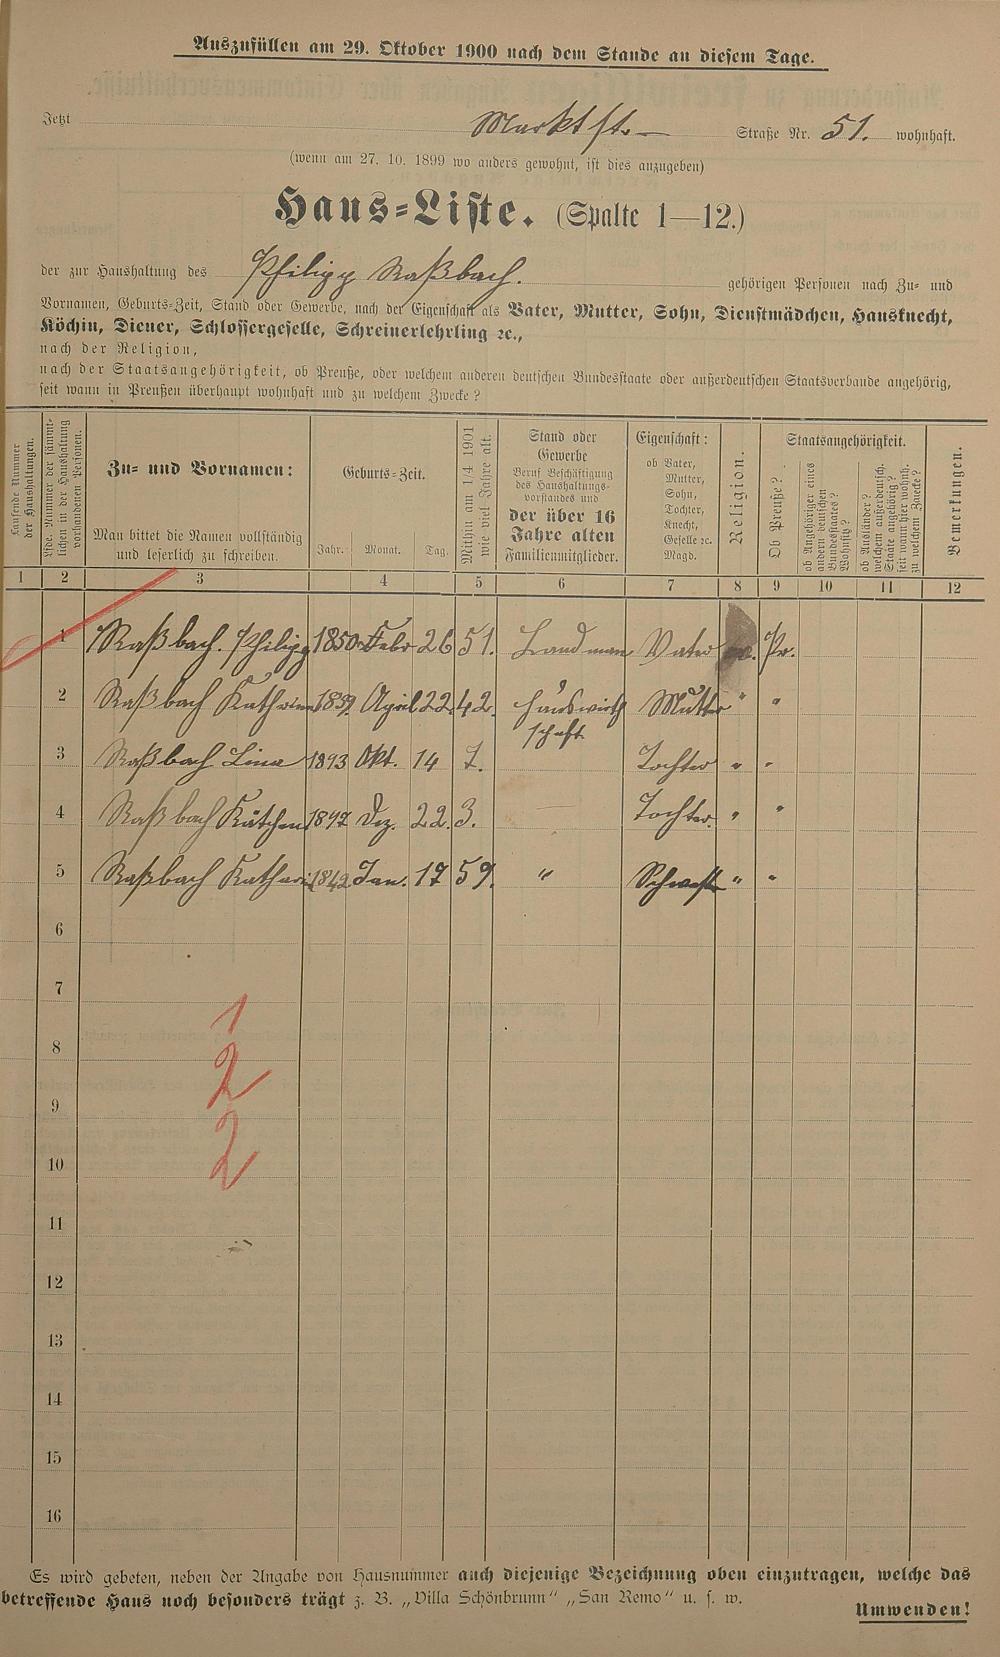 Auszufüllen am 29. Oktober 1900 nach dem Stande an diesem Tage.
Jetzt Marktstr. Straße Nr. 51. wohnhaft.
(wenn am 27. 10. 1899 wo anders gewohnt, ist dies anzugeben)
Haus-Liste. (Spalte 1—12.)
der zur Haushaltung des Philipp Raßbach. gehörigen Personen nach Zu- und
Vornamen, Geburts-Zeit, Stand oder Gewerbe, nach der Eigenschaft als Vater, Mutter, Sohn, Dienstmädchen, Hausknecht,
Köchin, Diener, Schlossergeselle, Schreinerlehrling ꝛc.,
nach der Religion,
nach der Staatsangehörigkeit, ob Preuße, oder welchem anderen deutschen Bundesstaate oder außerdeutschen Staatsverbande angehörig,
seit wann in Preußen überhaupt wohnhaft und zu welchem Zwecke?
Laufende Nummer
der Haushaltungen.
Lfde. Nummer der sämmt-
lichen in der Haushaltung
vorhandenen Personen.
Zu- und Vornamen:
Man bittet die Namen vollständig
und leserlich zu schreiben.
Geburts-Zeit.
Jahr. Monat. Tag.
Mithin am 1/4 1901
wie viel Jahre alt.
Stand oder
Gewerbe
Beruf Beschäftigung
des Haushaltungs-
vorstandes und
der über 16
Jahre alten
Familienmitglieder.
Eigenschaft:
ob Vater,
Mutter,
Sohn,
Tochter,
Knecht,
Geselle ꝛc.
Magd.
Religion.
Staatsangehörigkeit.
Ob Preuße?
ob Angehöriger eines
andern deutschen
Bundesstaates?
Wohnsitz?
ob Ausländer?
welchem außerdeutsch.
Staate angehörig?
seit wann hier wohnh.
zu welchem Zwecke?
Bemerkungen.
1 2 3 4 5 6 7 8 9 10 11 12
1 Raßbach. Philipp 1850 Febr 26 51. Landmann Vater Pr.
2 Raßbach 1859 April 22. 42. Hauswirth Mutter " "
schaft
3 Raßbach Lina 1893 Okt. 14 7. Tochter " "
4 Raßbach Kätchen 1897 Dez. 22. 3. Tochter. " "
5 Raßbach 1842 Jan. 17 59. " " "
6
7
1
8
2
9
2
10
11
12
13
14
15
16
Es wird gebeten, neben der Angabe von Hausnummer auch diejenige Bezeichnung oben einzutragen, welche das
betreffende Haus noch besonders trägt z. B. „Villa Schönbrunn“ „San Remo“ u. s. w.
Umwenden!